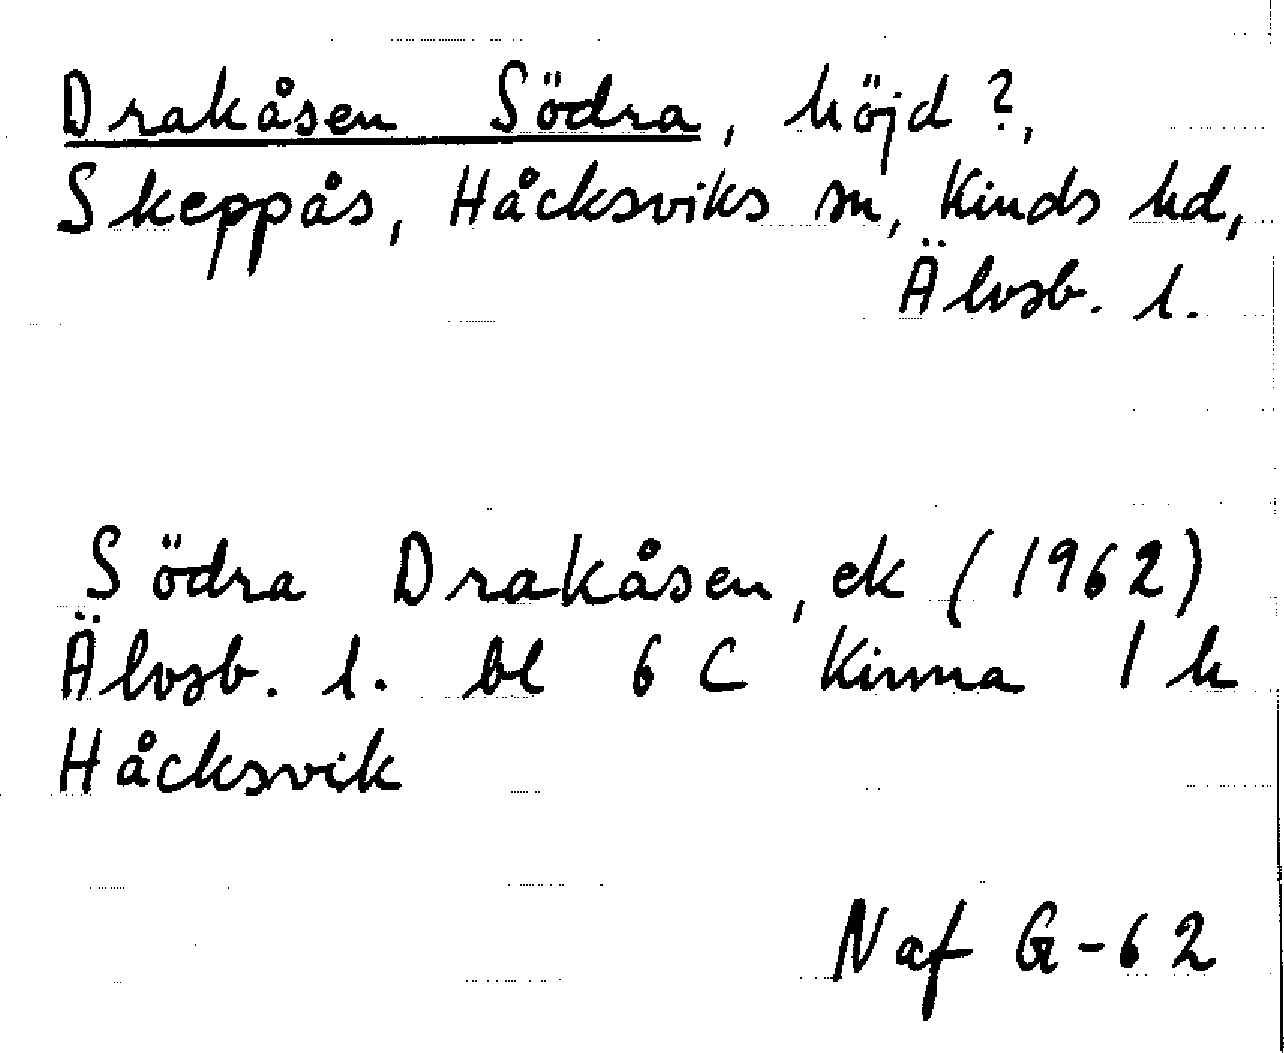 Drakåsen Södra, höjd?,
Skeppås, Håcksviks sn, Kinds hd,
Älvsb. l.
Södra Drakåsen, ek (1962)
Älvsb. l. bl 6 C Kinna 1 h
Håcksvik
Naf G-62